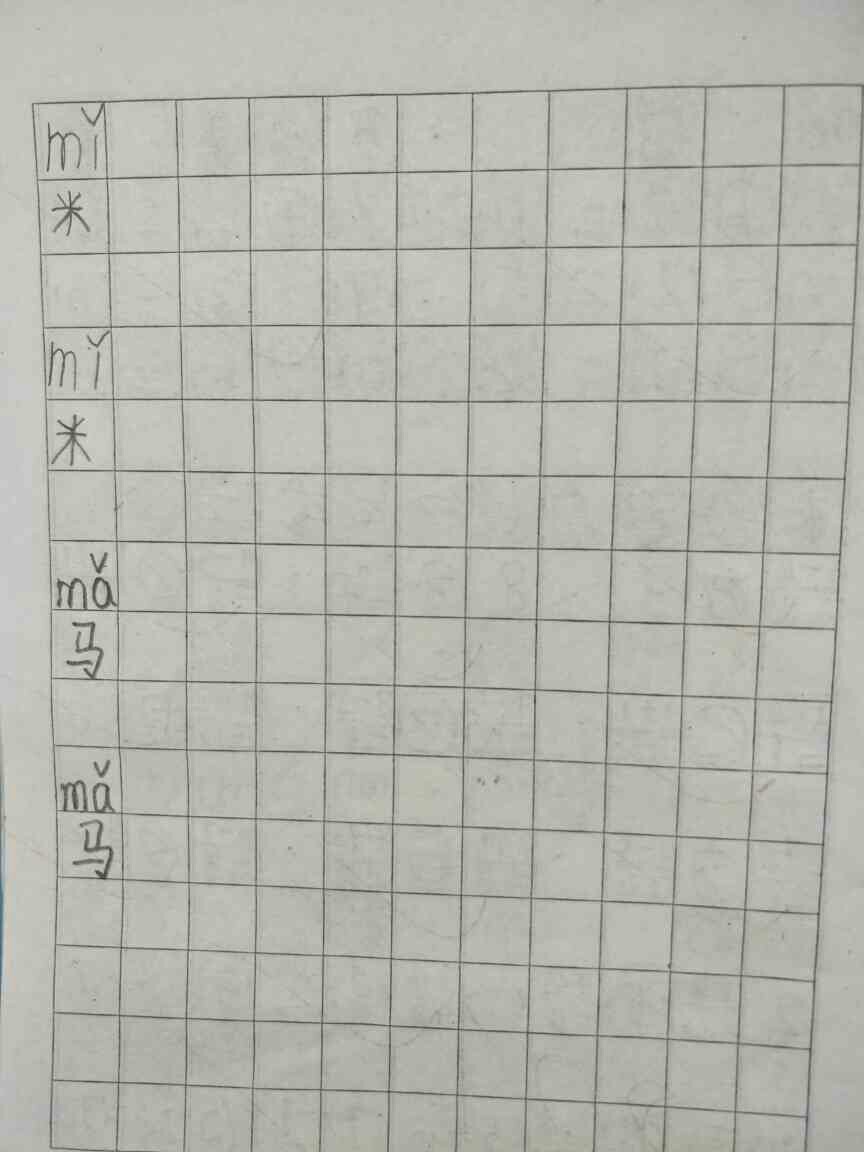 mǐ
米
mǐ
米
mǎ
马
mǎ
马